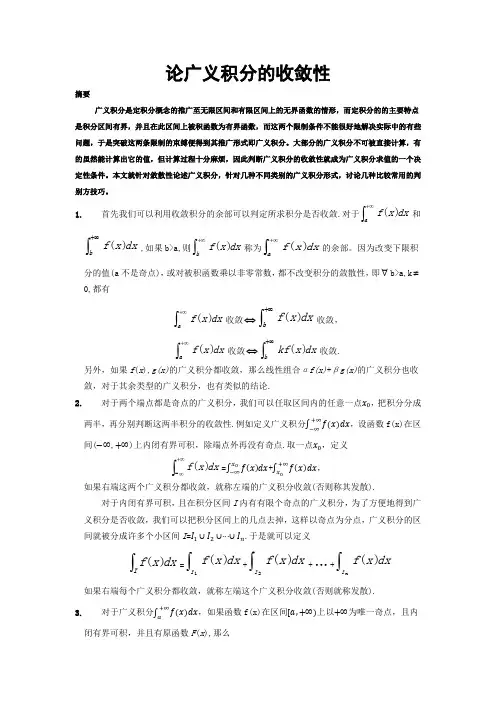 论广义积分的收敛性
摘要
广义积分是定积分概念的推广至无限区间和有限区间上的无界函数的情形，而定积分的的主要特点
是积分区间有界，并且在此区间上被积函数为有界函数，而这两个限制条件不能很好地解决实际中的有些
问题，于是突破这两条限制的束缚便得到其推广形式即广义积分。大部分的广义积分不可被直接计算，有
的虽然能计算出它的值，但计算过程十分麻烦，因此判断广义积分的收敛性就成为广义积分求值的一个决
定性条件。本文就针对敛散性论述广义积分，针对几种不同类别的广义积分形式，讨论几种比较常用的判
别方技巧。
1. 首先我们可以利用收敛积分的余部可以判定所求积分是否收敛.对于∫_a^{+∞} f(x)dx 和
∫_b^{+∞} f(x)dx ,如果b>a,则∫_b^{+∞} f(x)dx 称为∫_a^{+∞} f(x)dx 的余部。因为改变下限积
分的值(a 不是奇点)，或对被积函数乘以非零常数，都不改变积分的敛散性，即∀b>a,k≠
0,都有
∫_a^{+∞} f(x)dx 收敛⇔∫_b^{+∞} f(x)dx 收敛，
∫_a^{+∞} f(x)dx 收敛⇔∫_b^{+∞} kf(x)dx 收敛.
另外，如果 f(x),g(x)的广义积分都收敛，那么线性组合αf(x)+βg(x)的广义积分也收
敛，对于其余类型的广义积分，也有类似的结论.
2. 对于两个端点都是奇点的广义积分，我们可以任取区间内的任意一点x₀，把积分分成
两半，再分别判断这两半积分的收敛性.例如定义广义积分∫_{-∞}^{+∞} f(x)dx，设函数 f(x)在区
间(−∞,+∞)上内闭有界可积，除端点外再没有奇点.取一点x₀，定义
∫_{-∞}^{+∞} f(x)dx =∫_{-∞}^{x₀} f(x)dx+∫_{x₀}^{+∞} f(x)dx，
如果右端这两个广义积分都收敛，就称左端的广义积分收敛(否则称其发散).
对于内闭有界可积，且在积分区间 I 内有有限个奇点的广义积分，为了方便地得到广
义积分是否收敛，我们可以把积分区间上的几点去掉，这样以奇点为分点，广义积分的区
间就被分成许多个小区间 I=I₁∪I₂∪⋯∪Iₙ.于是就可以定义
∫_I f(x)dx =∫_{I₁} f(x)dx +∫_{I₂} f(x)dx +•••+∫_{Iₙ} f(x)dx
如果右端每个广义积分都收敛，就称左端这个广义积分收敛(否则就称发散).
3. 对于广义积分∫_a^{+∞} f(x)dx，如果函数 f(x)在区间[a,+∞)上以+∞为唯一奇点，且内
闭有界可积，并且有原函数 F(x),那么